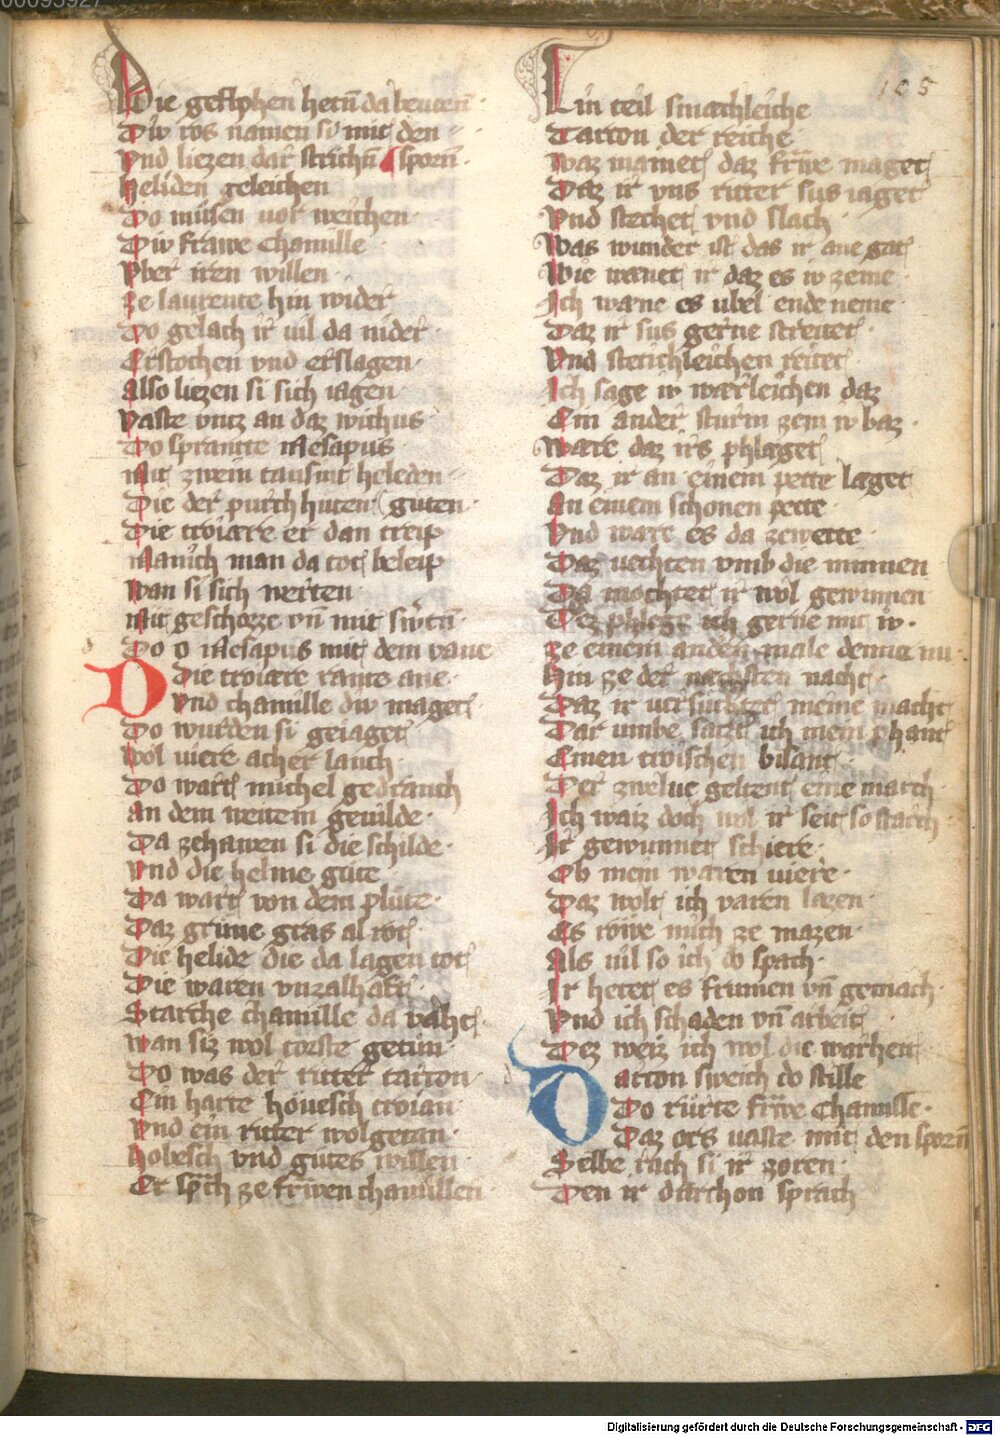 00095927
105
Die geflohen hetñ da beuorñ
Diw ros namen si mit den
Vnd liezen dar strichñ sporñ
Heliden geleichen
Do mûsen vor weichen
Div frawe Chamille
Vber iren willen
ze laurente hin wider
Do gelach ir uil da nider
Erstochen vnd erslagen
Also liezen si sich iagen
Vaste vntz an daz wichus
Do sprancte Mesapus
Mit zwein tausint heleden
Die der purch huten guten
Die troiære er dan treip
Manich man da tot beleip
wan si sich werten
Mit geschozze vñ mit swertñ
Do o Mesapus mit dem vane
Die troiære rante ane
Vnd chamille diw maget
Do wurden si geiaget
wol viere acher lanch
Do wart michel gedranch
An dem weitem geuilde
Da zehawen si die schilde
Vnd die helme gûte
Da wart von dem plûte
Daz grûne gras al rot
Die helide die da lagen tot
Die waren vnzalhaft
Starche chamille da vaht
wan siz wol torste getun
Do was der ritter tarcon
Ein harte hôuesch troian
Vnd ein ritter wolgetan
hobesch vnd gutes willen
Er sprach ze frŵen chamillen
Ein teil smæchleiche
Tarcon der reiche
waz mainet daz frŵe maget
Daz ir vns ritter sus iaget
Vnd stechet vnd slach
Was wunder ist das ir ane gat
Wie wænet ir daz es iv zeme
Ich wæne es vbel ende neme
Daz ir sus gerne streitet
Vnd sterchleichen reitet
Ich sage iv wærleichen daz
Ein ander sturm zem iv baz
Wære daz irs phlæget
Daz ir an einem pette læget
An einem schonen pette
Vnd wære es da zewette
Daz vechten vmb die minnen
Da mochtet ir wol gewinnen
Dez phlege ich gerne mit iv
ze einem andern male denne nu
Hin ze der næchsten nacht
Daz ir versuchtet meine macht
Dar vmbe satzt ich mein phant
Einen troischen bisant
Der zwelue geltent eine march
Ich waiz doch wol ir seit so starch
Ir gewunnet schiere
Ob mein wæren viere
Daz wolt ich varen lazen
Es rŵwe mich ze mazen
Als vil so ich do sprach
Ir hetet es frumen vñ gemach
Vnd ich schaden vñ arbeit
Dez weiz ich wol die warheit
Darcon sweich do stille
Do rûrte frŵe Chamille
Daz ors vaste mit den sporñ
Selbe rach si ir zoren
Den ir darchon sprach
Digitalisierung gefördert durch die Deutsche Forschungsgemeinschaft - DFG